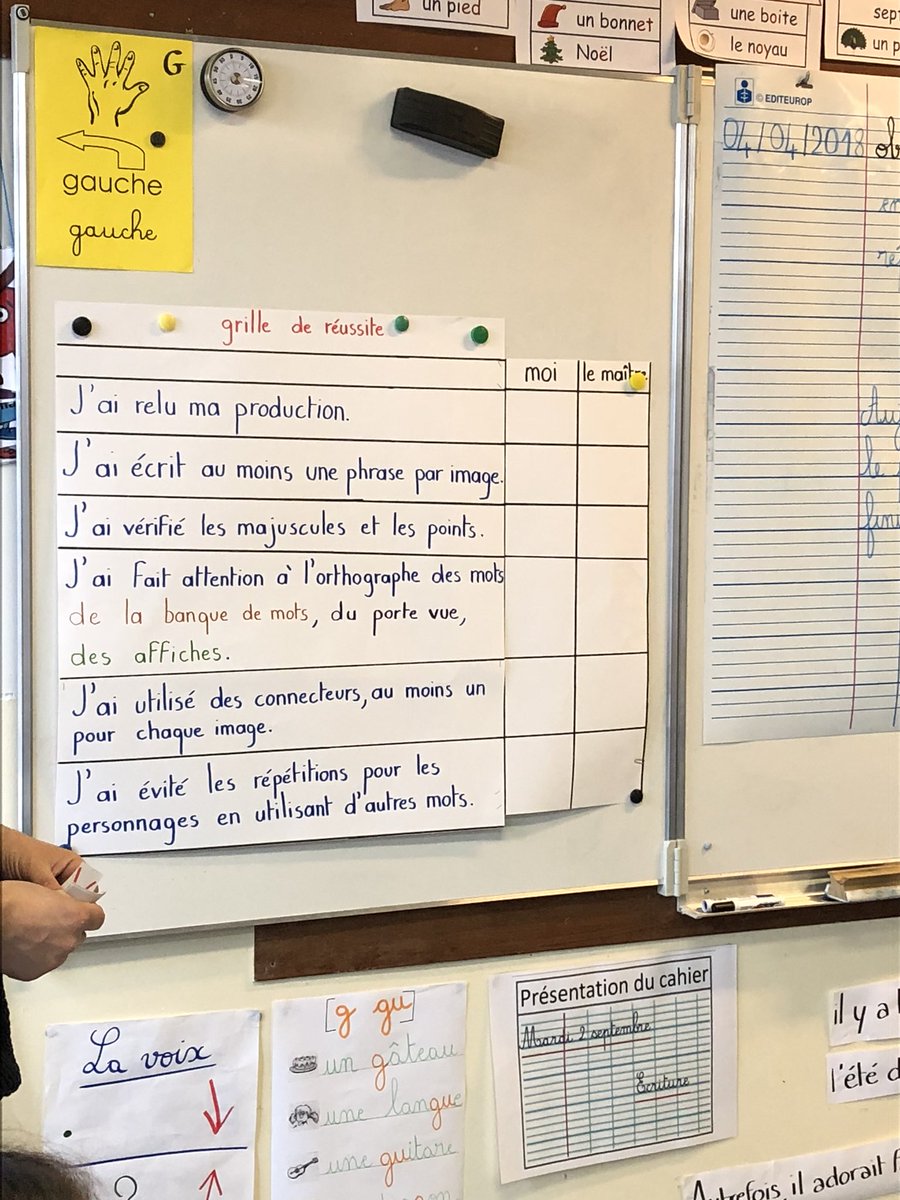 un pied
un bonnet
Noël
une boite
le noyau
sept
G
gauche
gauche
© EDITEUROP
04/04/2018
grille de réussite
moi
le maître
J'ai relu ma production.
J'ai écrit au moins une phrase par image.
J'ai vérifié les majuscules et les points.
J'ai fait attention à l'orthographe des mots
de la banque de mots, du porte vue,
des affiches.
J'ai utilisé des connecteurs, au moins un
pour chaque image.
J'ai évité les répétitions pour les
personnages en utilisant d'autres mots.
La voix
[g gu]
un gâteau
une langue
une guitare
Présentation du cahier
Mardi 2 septembre
Ecriture
il y a
l'été
Autrefois, il adorait